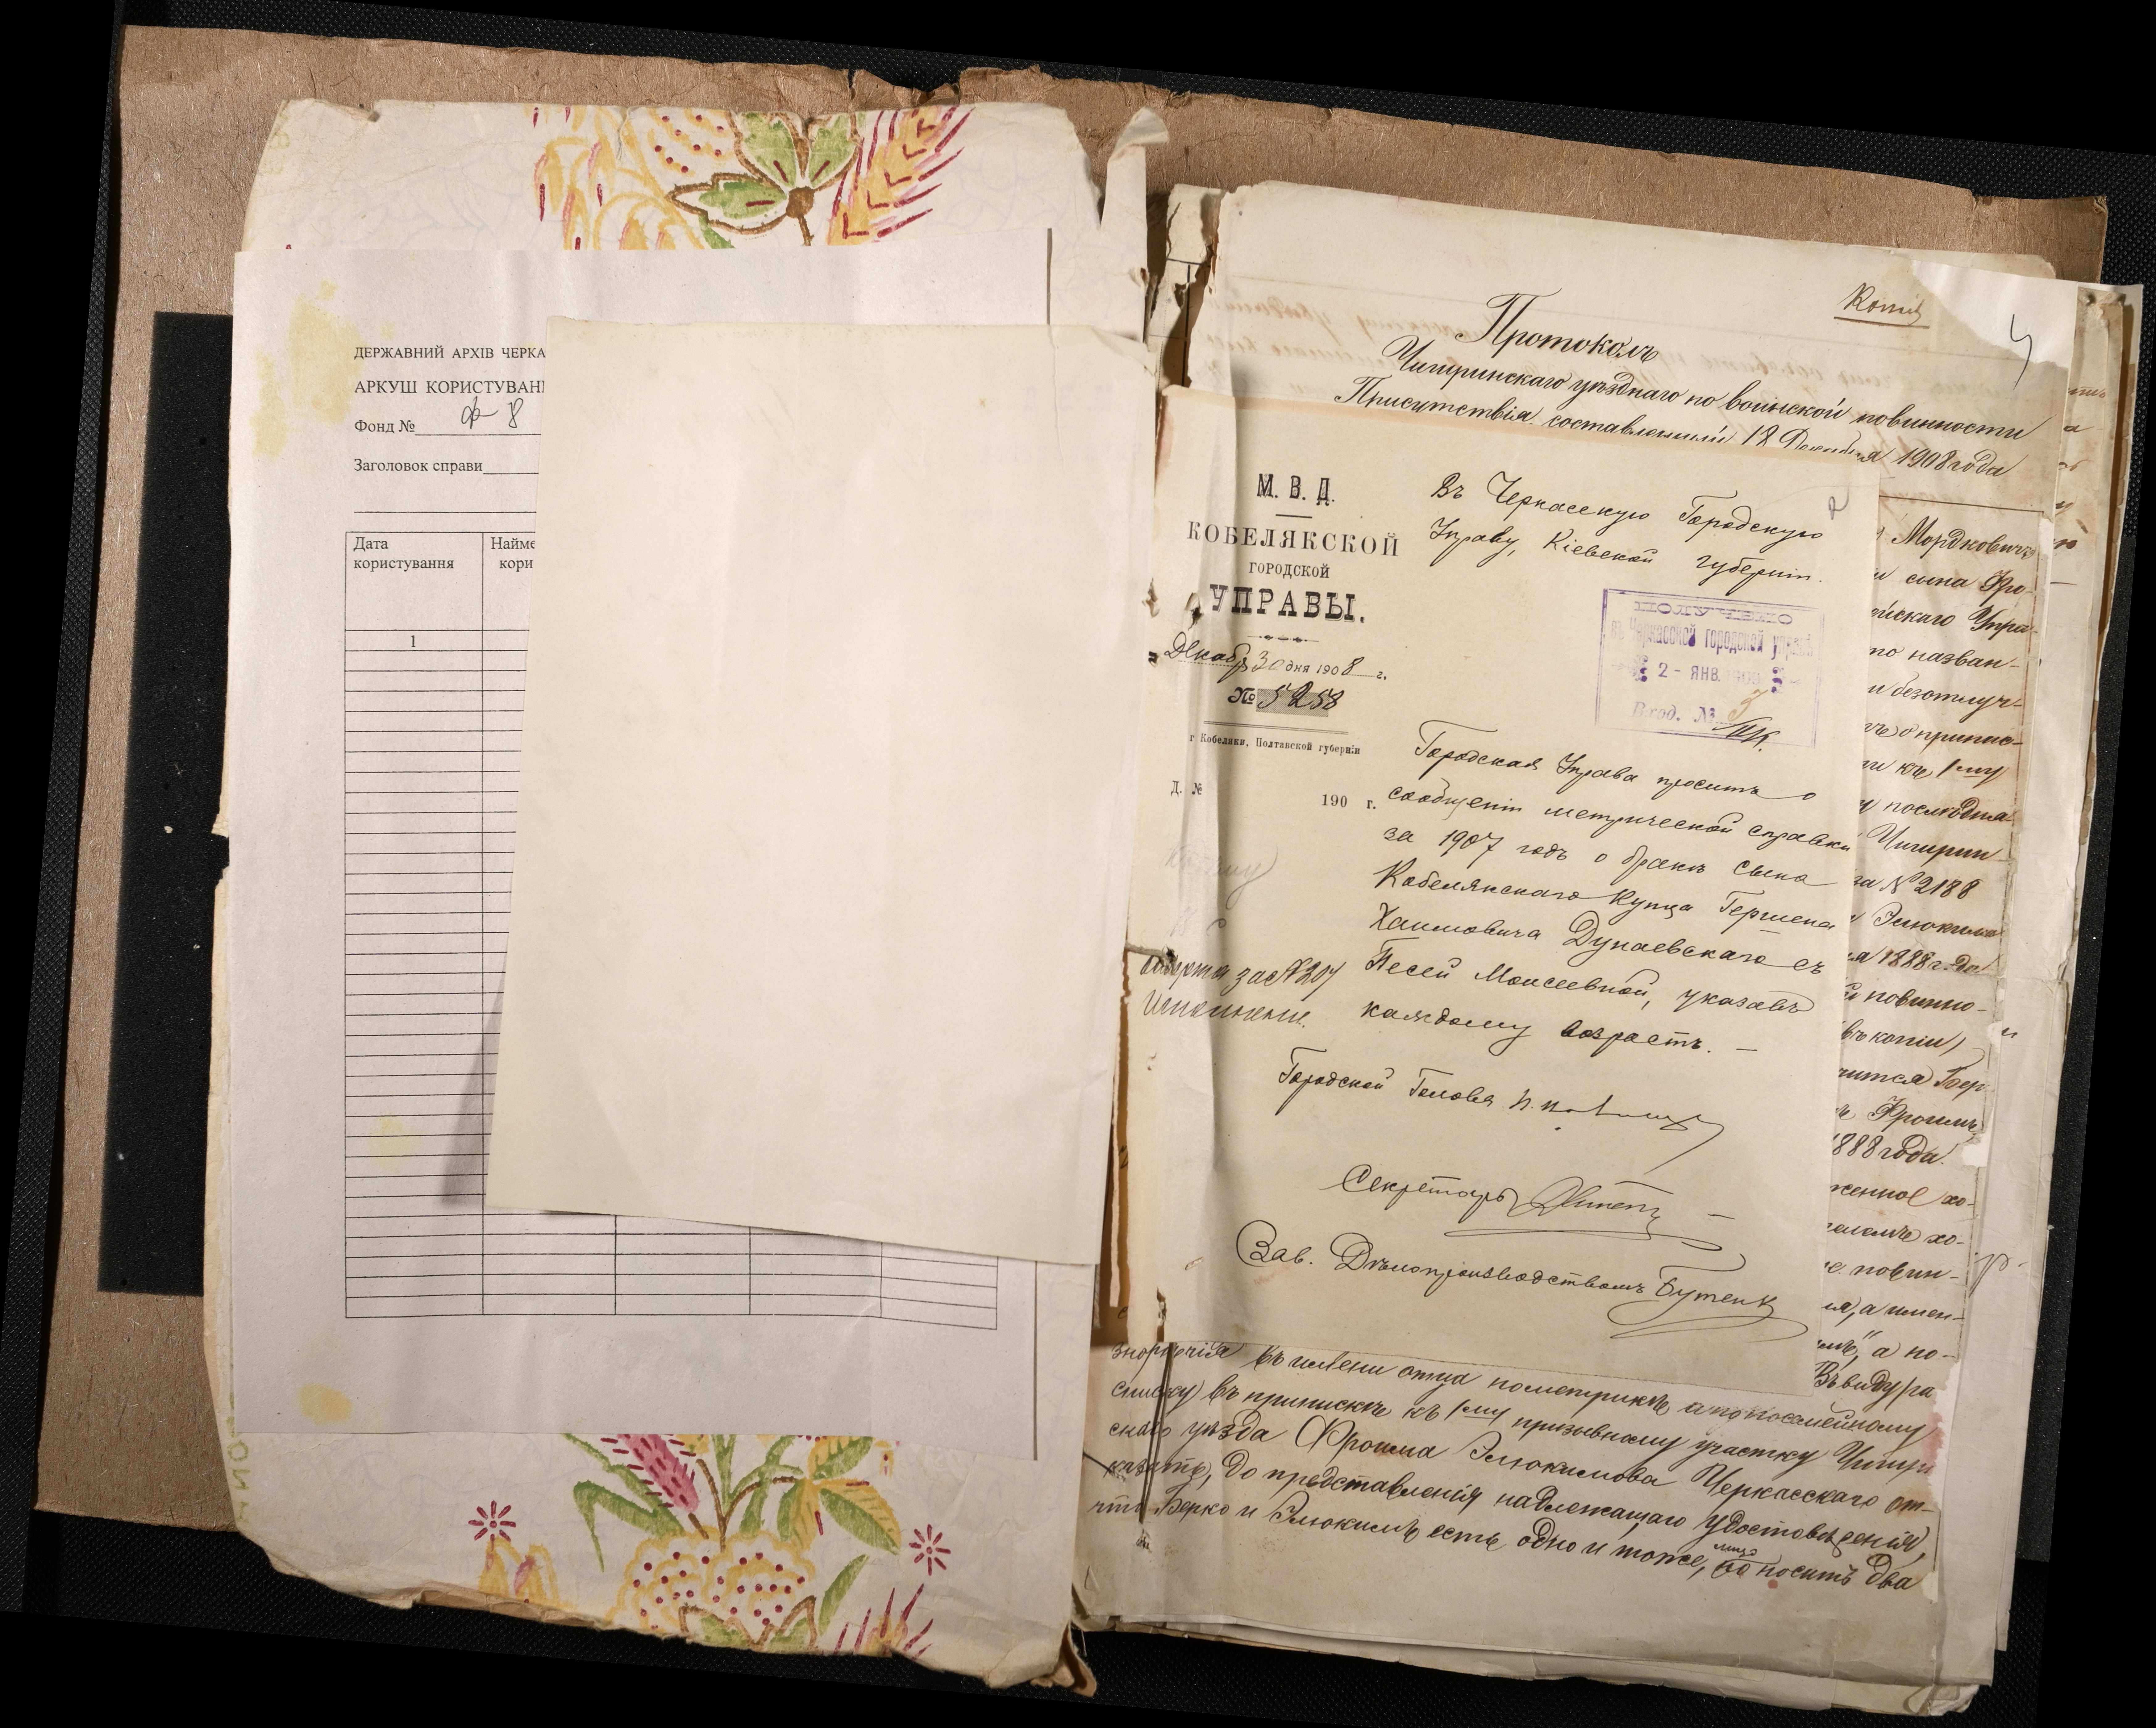 ДЕРЖАВНИЙ АРХІВ ЧЕРКА
АРКУШ КОРИСТУВАН
Фонд № ф-8
Заголовок справи
Дата користування
Найме
кори
1
Копія
Протоколъ
Чигиринскаго уѣзднаго по воинской повинности
Присутствія, составленный 18 Декабря 1908 года
М. В. Д.
КОБЕЛЯКСКОЙ
ГОРОДСКОЙ
УПРАВЫ.
Декабр 30 дня 1908 г.
№ 5258
г Кобеляки, Полтавской губерніи
Д. №
190 г.
Въ Черкасскую Городскую
Управу, Кіевской губерніи.
ПОЛУЧЕНО
въ Черкасской городской управѣ
2 - ЯНВ. 1909
Вход. № 3
Городская Управа проситъ о
сообщеніи метрической справки
за 1907 годъ о бракѣ сына
Кобелякскаго Купца Гершена
Хаимовича Дунаевскаго съ
Песей Моисеевной, указавъ
каждому возрастъ. —
за № 204
Исполненіе.
Городской Голова
Секретарь
Зав. Дѣлопроизводствомъ Бутенк
Мордковичъ
и сына Фро-
йскаго Упра-
то назван-
и безотлуч-
ъ о припис-
ти къ 1му
у послѣдня
Чигирин
за № 2188
Элюкима
я 1888 г. да
й повинно-
(въ копіи)
чится Бер
ъ Фроимъ
1888 года.
женное хо-
е повин-
ія, а имен-
мъ", а по-
Въ виду ра
знорѣчія въ имени отца по метрикѣ а по посемейному
списку) въ припискѣ къ 1му призывному участку Чигири
скаго уѣзда Фроима Элюкимова Черкасскаго от-
казать, до представленія надлежащаго удостовѣренія,
что Берко и Элюкимъ есть одно и тоже, лицо
носитъ два